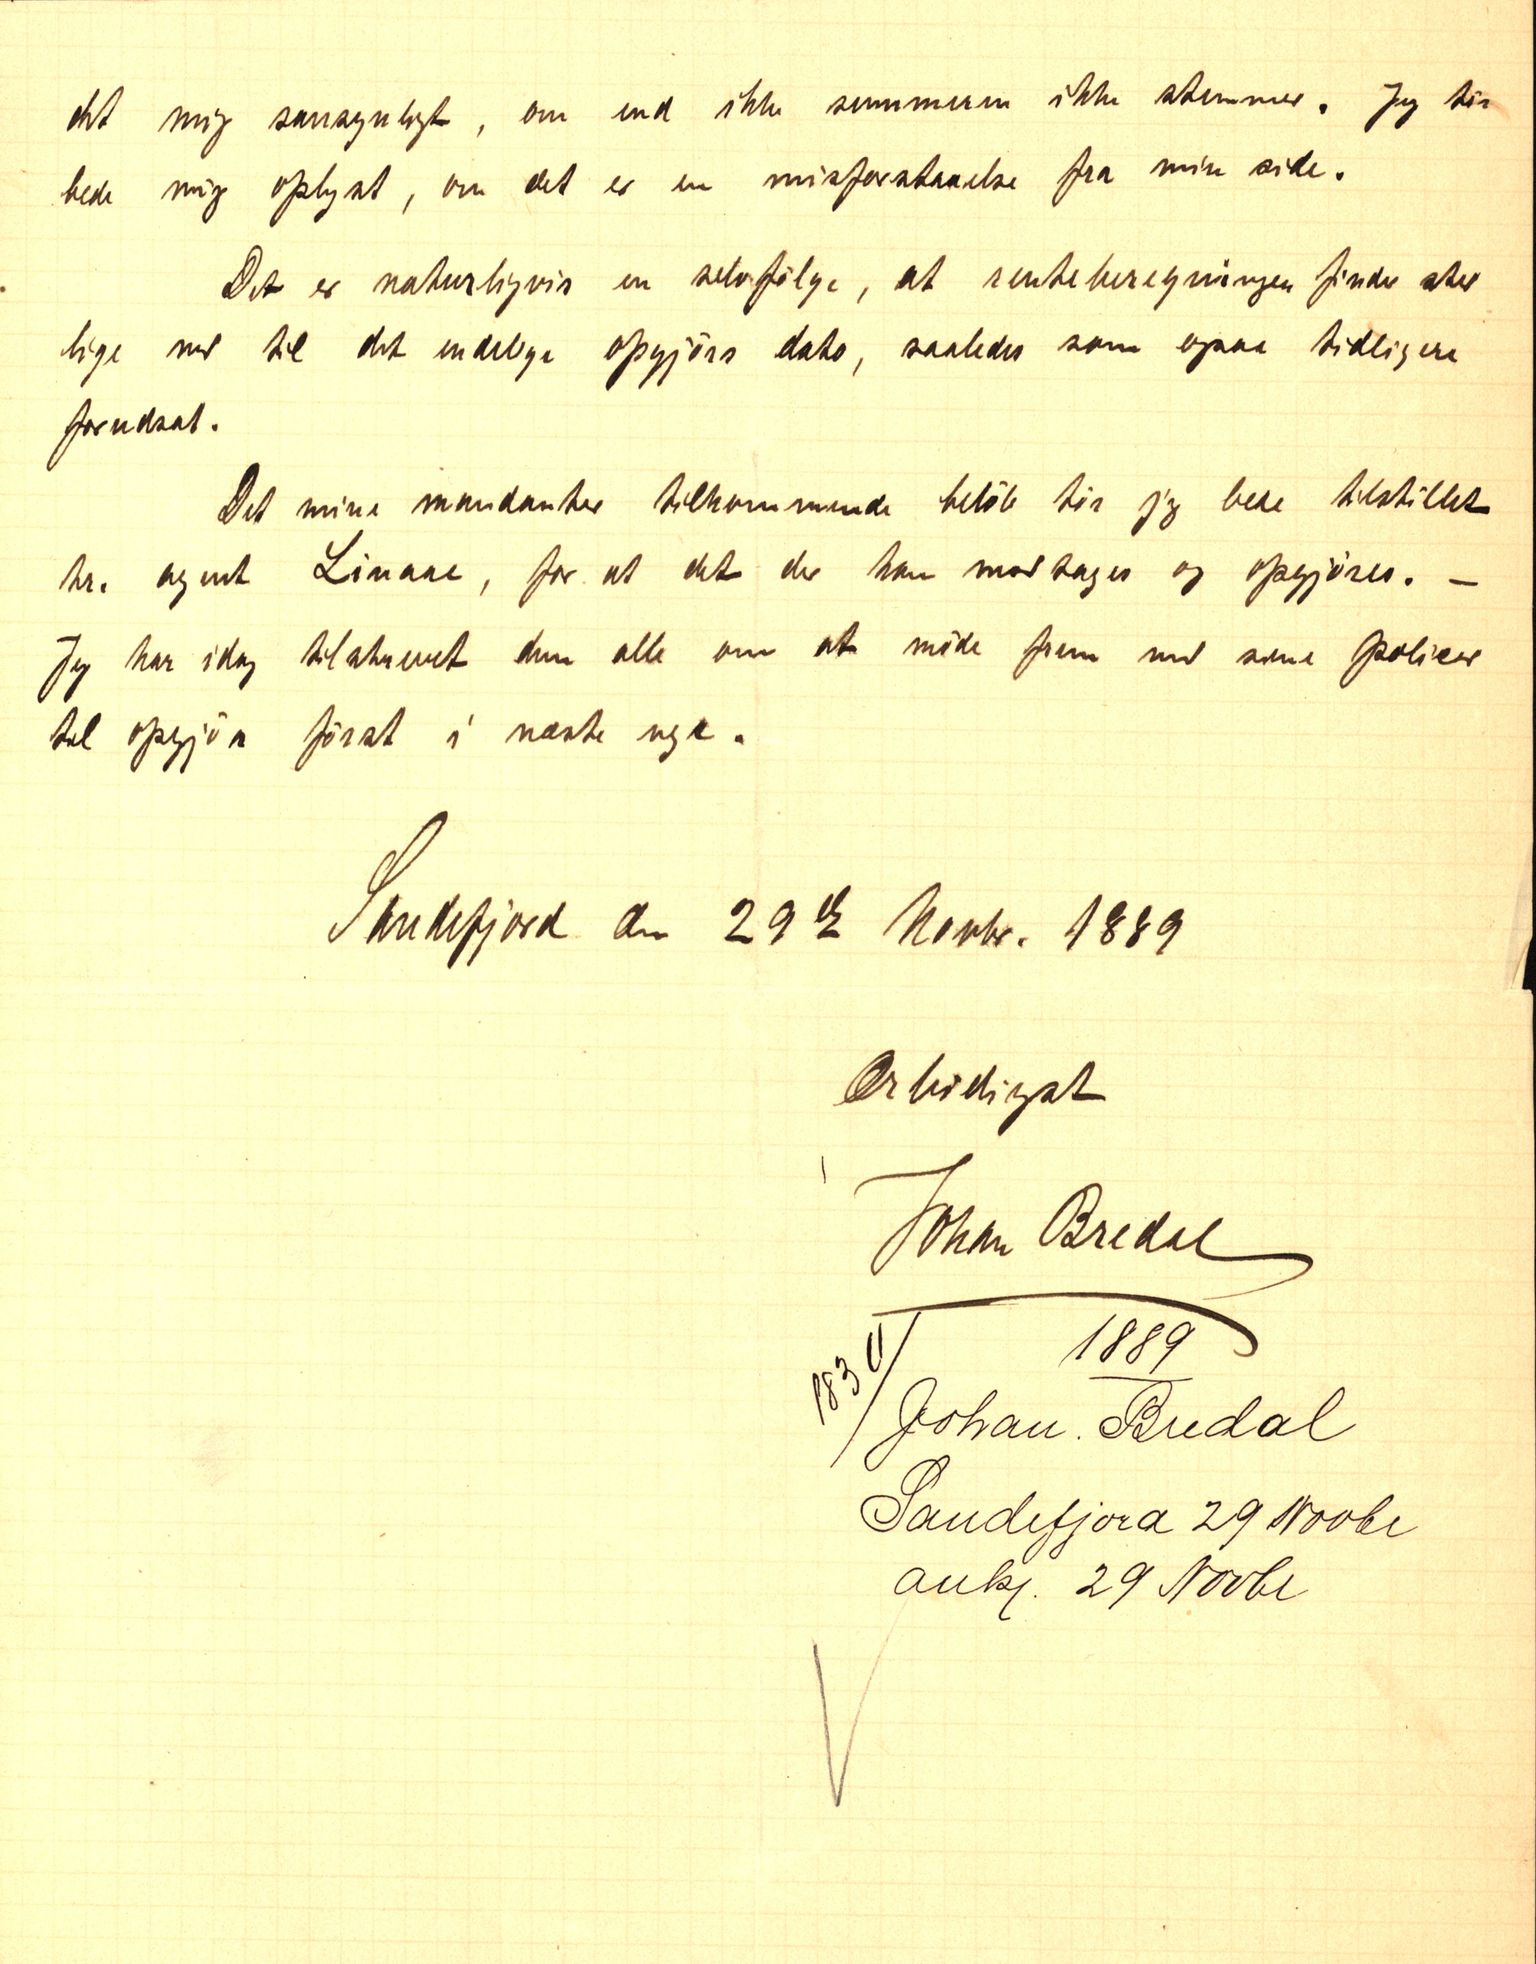 det mig sansynligt, om end ikke summerne ikke stemmer. Jeg tör
bede mig oplyst, om det er en misforstaaelse fra min side.
Det er naturligvis en selvfölge, at renteberegningen finder sted
lige ned til det endelige opgjörs dato, saaledes som ogsaa tidligere
forudsat.
Det mine mandanter tilkommende belöb tör jeg bede tilstillet
hr. agent Linaae, for at det der kan modtages og opgjöres. –
Jeg har idag tilskrevet dem alle om at möde frem med sine policer
til opgjör först i næste uge.
Sandefjord den 29de Novbr. 1889
Ærbödigst
Johan Bredal
1889
183
Johan. Bredal
Sandefjord 29 Novbr
ank. 29 Novbr